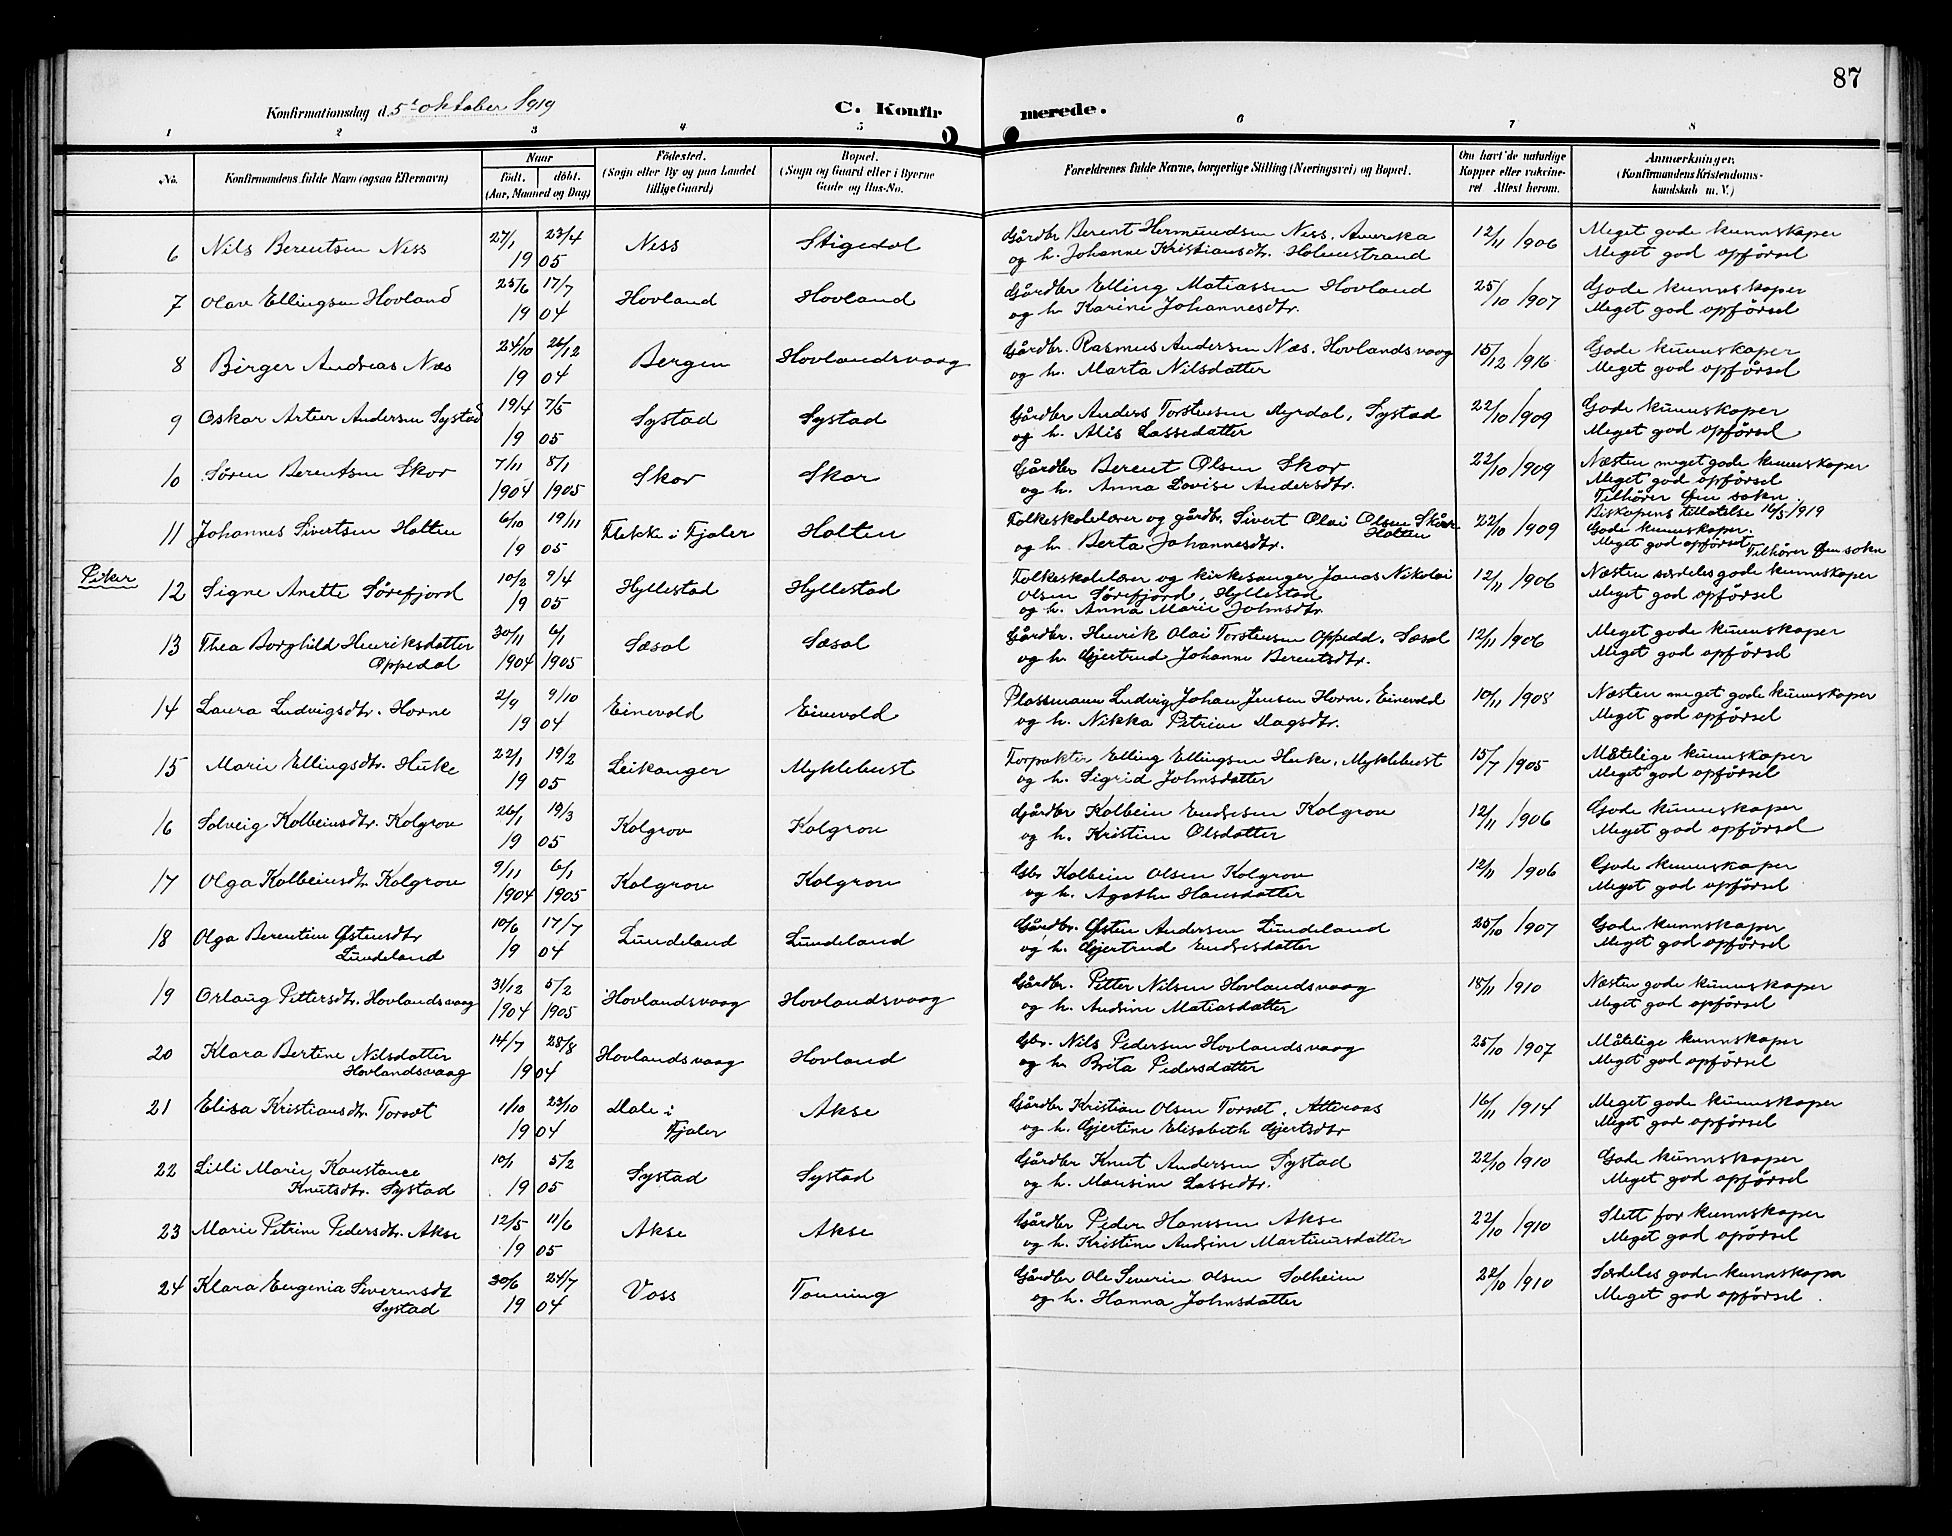 87
Konfirmationsdag d. 5t oktober 1919
C. Konfirmerede.
1 2 3 4 5 6 7 8
No.
Konfirmandens fulde Navn (ogsaa Efternavn)
Naar
født. døbt.
(Aar, Maaned og Dag)
Fødested.
(Sogn eller By og paa Landet
tillige Gaard)
Bopæl.
(Sogn og Gaard eller i Byerne
Gade og Hus-No.
Forældrenes fulde Navne, borgerlige Stilling (Næringsvei) og Bopæl.
Om havt de naturlige
Kopper eller vakcine-
ret Attest herom.
Anmærkninger.
(Konfirmandens Kristendoms-
kundskab m. V.)
6 Nils Berentsen Ness 27/1 23/4 Ness Stigedal Gårdbr Berent Hermundsen Ness, Amerika 12/11 1906 Meget gode kunnskaper
1905 og h. Johanne Kristiansdtr. Holmestrand Meget god opførsel
7 Olav Ellingsen Hovland 25/6 17/7 Hovland Hovland Gårdbr Elling Matiassen Hovland 25/10 1907 Gode kunnskaper
1904 og h. Karine Johannesdtr. Meget god opførsel
8 Birger Andreas Næs 24/10 26/12 Bergen Hovlandsvaag Gårdbr. Rasmus Andersen Næs, Hovlandsvaag 15/12 1916 Gode kunnskaper
1904 og h. Marta Nilsdatter Meget god opførsel
9 Oskar Artur Andersen Systad 19/4 7/5 Systad Systad Gårdbr Anders Torstensen Myrdal, Systad 22/10 1909 Gode kunnskaper
1905 og h. Alis Lassedatter Meget god opførsel
10 Søren Berentsen Skor 7/11 8/1 Skor Skor Gårdbr Berent Olsen Skor 22/10 1909 Næsten meget gode kunnskaper
1904 1905 og h. Anna Lovise Andersdtr. Meget god opførsel
Tilhører Øen sokn.
11 Johannes Sivertsen Holten 6/10 19/11 Flekke i Fjaler Holten Folkeskolelærer og gårdbr. Sivert Olai Olsen Skår 22/10 1909 Biskopens tillatelse 16/5 1919
Holten Gode kunnskaper.
1905 og h. Berta Johannesdtr. Meget god opførsel
Tilhører Øen sokn
Piker
12 Signe Anette Sørefjord 10/2 9/4 Hyllestad Hyllestad Folkeskolelærer og kirkesanger Jonas Nikolai 12/11 1906 Næsten særdeles gode kunnskaper
1905 Olsen Sørefjord, Hyllestad Meget god opførsel
og h. Anna Marie Johnsdtr.
13 Thea Borghild Henriksdatter 30/11 6/1 Sæsol Sæsol Gårdbr. Henrik Olai Torstensen Oppedal, Sæsol 12/11 1906 Meget gode kunnskaper
Oppedal 1904 1905 og h. Gjertrud Johanne Berentsdtr. Meget god opførsel
14 Laura Ludvigsdtr. Horne 2/9 9/10 Einevold Einevold Plassmann Ludvig Johan Jensen Horne, Einevold 10/11 1908 Næsten meget gode kunnskaper
1904 og h. Nikka Petrine Dagsdtr. Meget god opførsel
15 Marie Ellingsdtr. Huke 22/1 19/2 Leikanger Myklebust Forpakter Elling Ellingsen Huke, Myklebust 15/7 1905 Måtelige kunnskaper
1905 og h. Sigrid Johnsdatter Meget god opførsel
16 Solveig Kolbeinsdtr. Kolgrov 26/1 19/3 Kolgrov Kolgrov Gårdbr Kolbein Endresen Kolgrov 12/11 1906 Gode kunnskaper
1905 og h. Kristine Olsdatter Meget god opførsel
17 Olga Kolbeinsdtr. Kolgrov 9/11 6/1 Kolgrov Kolgrov Gbr Kolbein Olsen Kolgrov 12/11 1906 Gode kunnskaper
1904 1905 og h. Agathe Hansdatter Meget god opførsel
18 Olga Berentine Østensdtr 10/6 17/7 Lundeland Lundeland Gårdbr. Østen Andersen Lundeland 25/10 1907 Gode kunnskaper
Lundeland 1904 og h. Gjertrud Endresdatter Meget god opførsel
19 Orlaug Pettersdtr. Hovlandsvaag 31/12 5/2 Hovlandsvaag Hovlandsvaag Gårdbr. Petter Nilsen Hovlandsvaag 18/11 1910 Næsten gode kunnskaper
1904 1905 og h. Andrine Matiasdatter Meget god opførsel
20 Klara Bertine Nilsdatter 14/7 28/8 Hovlandsvaag Hovland Gbr. Nils Pedersen Hovlandsvaag 25/10 1907 Måtelige kunnskaper
Hovlandsvaag 1904 og h. Brita Pedersdatter Meget god opførsel
21 Elisa Kristiansdtr. Torsæt 1/10 23/10 Dale i Akse Gårdbr Kristian Olsen Torsæt, Atteraas 16/11 1914 Meget gode kunnskaper
1904 Fjaler og h. Gjertine Elisabeth Gjertsdtr Meget god opførsel
22 Lilli Marie Konstance 10/1 5/2 Systad Systad Gårdbr Knut Andersen Systad 22/10 1910 Gode kunnskaper
Knutsdtr. Systad 1905 og h. Mausine Lassedtr. Meget god opførsel
23 Marie Petrine Pedersdtr. Akse 12/5 11/6 Akse Akse Gårdbr Peder Hanssen Akse 22/10 1910 Slett for kunnskaper
1905 og h. Kristine Andrine Martinusdatter Meget god opørsel
24 Klara Eugenia Severinsdt 30/6 24/7 Voss Tonning Gårdbr Ole Severin Olsen Solheim 22/10 1910 Særdeles gode kunnskaper
Systad 1904 og h. Hanna Johnsdatter Meget god opførsel.